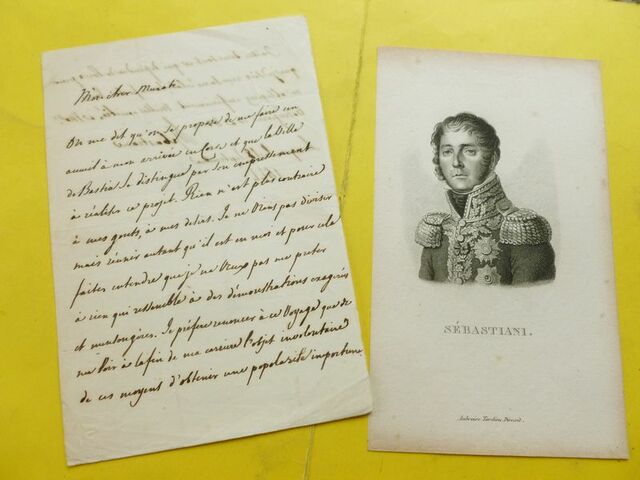 Mon cher Murati
On me dit qu'on se propose de me faire un
accueil à mon arrivée en Corse et que la Ville
de Bastia se distingue par son empressement
à réaliser ce projet. Rien n'est plus contraire
à mes gouts, à mes désirs. Je ne Viens pas diviser
mais réunir autant qu'il est en moi et pour cela
faites entendre que je ne Veux pas me preter
à rien qui ressemble à des démonstrations exagérées
et mensongères. Je préfère renoncer à ce Voyage que de
me Voir à la fin de ma carrière l'objet involontaire
de ces moyens d'obtenir une popularité importune
SÉBASTIANI.
Ambroise Tardieu Direxit.